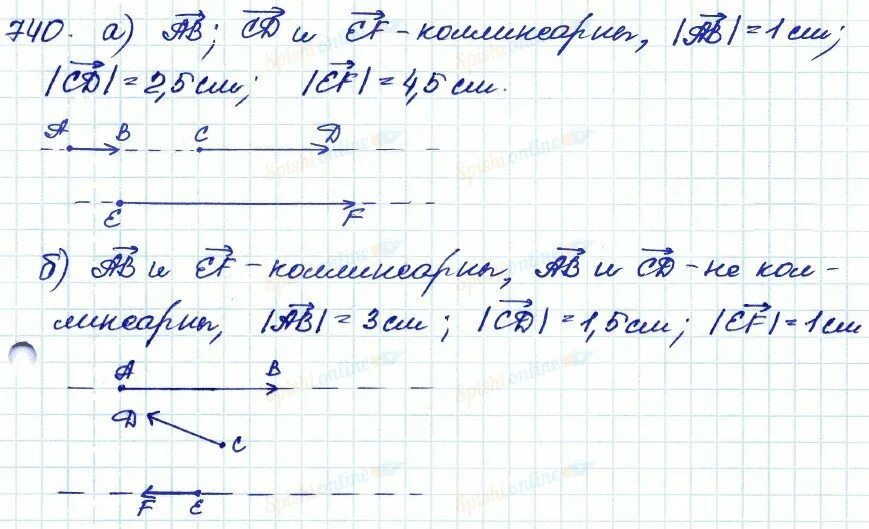 740. а) AB; CD и EF - коллинеарны, |AB| = 1 см;
|CD| = 2,5 см; |EF| = 4,5 см.
A B C D
E F
б) AB и EF - коллинеарны, AB и CD - не кол-
линеарны, |AB| = 3 см; |CD| = 1,5 см; |EF| = 1 см
A B
D
C
F E